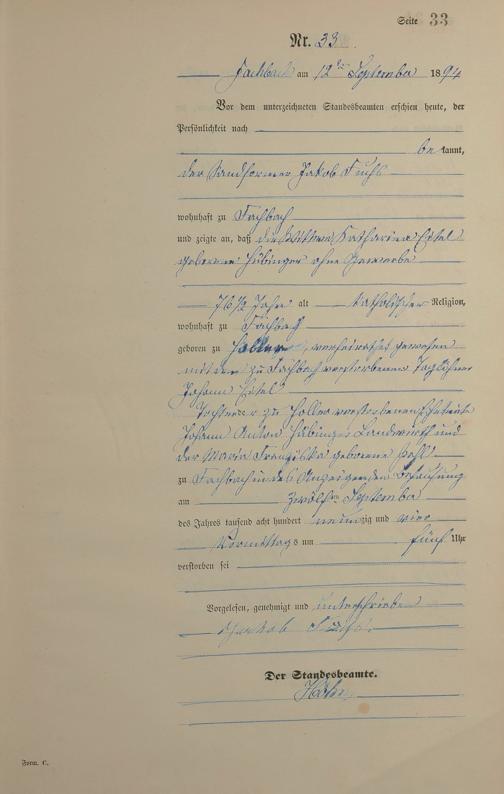 Seite 33
Nr. 33.
Fachbach am 12ten September 1894
Vor dem unterzeichneten Standesbeamten erschien heute, der
Persönlichkeit nach
bekannt,
der Sandformer Jakob Fuchs
wohnhaft zu Fachbach
und zeigte an, daß die Wittwe Katharina Eitel
geborene Hübinger ohne Gewerbe
76 1/2 Jahre alt katholischer Religion,
wohnhaft zu Fachbach
geboren zu Holler, verheirathet gewesen
mit dem zu Fachbach verstorbenen Taglöhner
Johann Eitel
Tochter der zu Holler verstorbenen Eheleute
Johann Anton Hübinger Landwirth und
der Maria Franziska geborene
zu Fachbach in des Anzeigenden Behausung
am zwölften September
des Jahres tausend acht hundert neunzig und vier
Vormittags um fünf Uhr
verstorben sei
Vorgelesen, genehmigt und unterschrieben
Jakob Fuchs.
Der Standesbeamte.
Form. C.